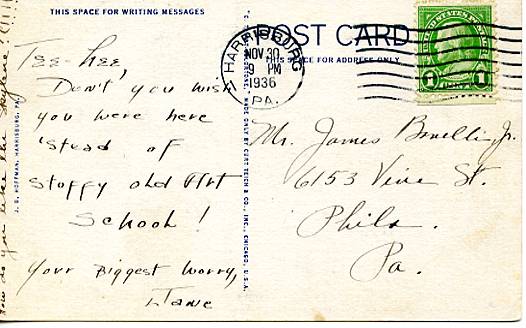 THIS SPACE FOR WRITING MESSAGES
Tee-hee
Don't you wish
you were here
'stead of
stoffy old Art
School!
Your Biggest Worry,
Jane
How do you like the skyline?
J. B. HOFFMAN, HARRISBURG, PA.
MADE ONLY BY CURT TEICH & CO., INC., CHICAGO, U.S.A.
POST CARD
THIS SPACE FOR ADDRESS ONLY
HARRISBURG
NOV 30
9 PM
1936
PA.
UNITED STATES POSTAGE
1 CENT 1
Mr. James Jr.
6153 Vine St.
Phila.
Pa.